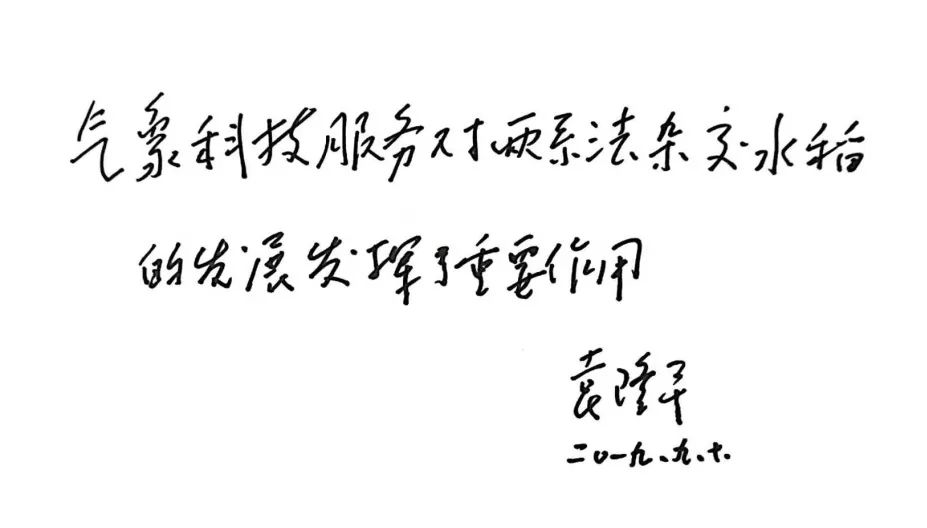 气象科技服务对两系法杂交水稻
的发展发挥了重要作用
袁隆平
二〇一九.九.十.